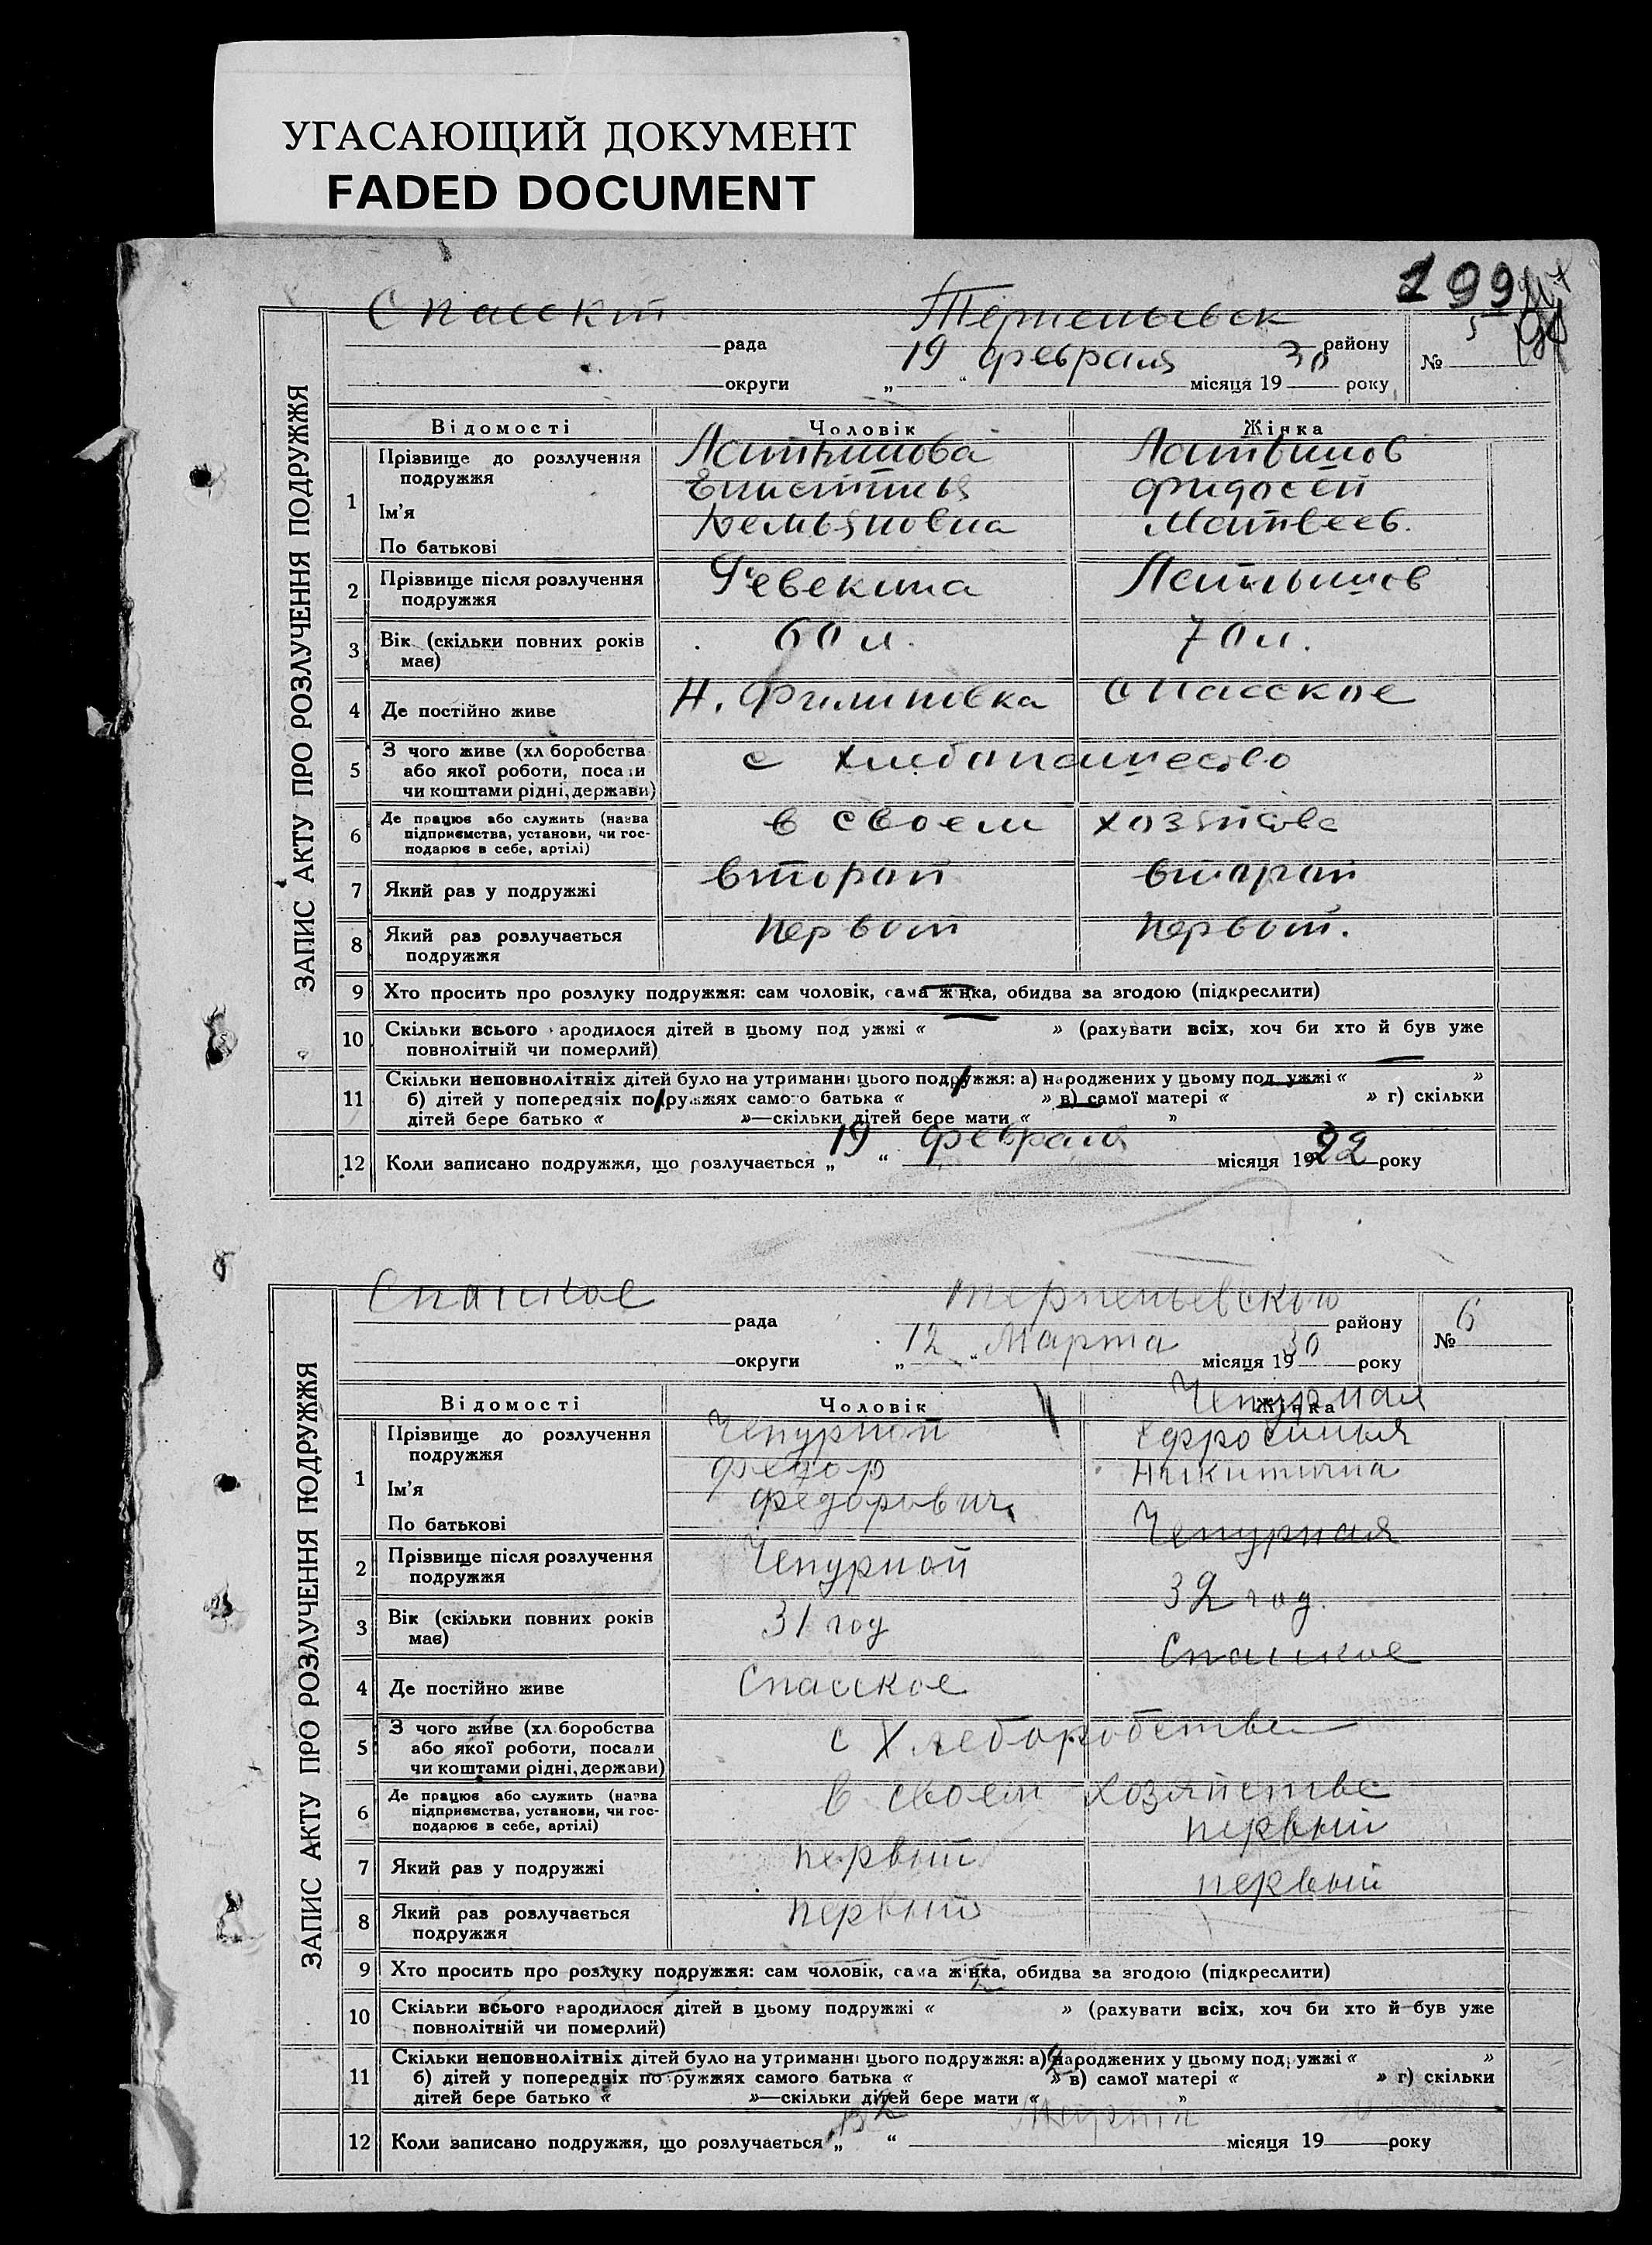 УГАСАЮЩИЙ ДОКУМЕНТ
FADED DOCUMENT
199
ЗАПИС АКТУ ПРО РОЗЛУЧЕННЯ ПОДРУЖЖЯ
Спасский рада Терпеньевск району № 5
округи „19“ февраля місяця 1930 року
Відомості Чоловік Жінка
1 Прізвище до розлучення подружжя Латышова Латышов
Ім'я Епистинья Фидосей
По батькові Демьяновна Матвеев.
2 Прізвище після розлучення подружжя Латышов
3 Вік (скільки повних років має) 60 л. 70 л.
4 Де постійно живе Н. Филиповка Спасское
5 З чого живе (хліборобства або якої роботи, посади чи коштами рідні, держави) с хлебопашество
6 Де працює або служить (назва підприємства, установи, чи господарює в себе, артілі) в своем хозяйсве
7 Який раз у подружжі второй второй
8 Який раз розлучається подружжя первой первой.
9 Хто просить про розлуку подружжя: сам чоловік, сама жінка, обидва за згодою (підкреслити)
10 Скільки всього народилося дітей в цьому подружжі « — » (рахувати всіх, хоч би хто й був уже
повнолітній чи померлий)
11 Скільки неповнолітніх дітей було на утриманні цього подружжя: а) народжених у цьому подружжі « — »
б) дітей у попередніх подружжях самого батька « » в) самої матері « » г) скільки
дітей бере батько « »—скільки дітей бере мати « »
12 Коли записано подружжя, що розлучається „19“ февраля місяця 1922 року
ЗАПИС АКТУ ПРО РОЗЛУЧЕННЯ ПОДРУЖЖЯ
Спасское рада Терпеньевского району № 6
округи „12“ Марта місяця 1930 року
Відомості Чоловік Жінка
1 Прізвище до розлучення подружжя Чепурной Чепурная
Ім'я Федор Ефросинья
По батькові Федорович Никитична
2 Прізвище після розлучення подружжя Чепурной Чепурная
3 Вік (скільки повних років має) 31 год 32 год.
4 Де постійно живе Спасское Спасское
5 З чого живе (хліборобства або якої роботи, посади чи коштами рідні, держави) с Хлеборобства
6 Де працює або служить (назва підприємства, установи, чи господарює в себе, артілі) в своем хозяйстве
7 Який раз у подружжі первый первый
8 Який раз розлучається подружжя первый первый
9 Хто просить про розлуку подружжя: сам чоловік, сама жінка, обидва за згодою (підкреслити)
10 Скільки всього народилося дітей в цьому подружжі « » (рахувати всіх, хоч би хто й був уже
повнолітній чи померлий)
11 Скільки неповнолітніх дітей було на утриманні цього подружжя: а) народжених у цьому подружжі « »
б) дітей у попередніх подружжях самого батька « » в) самої матері « » г) скільки
дітей бере батько « »—скільки дітей бере мати « »
12 Коли записано подружжя, що розлучається „ “ місяця 19 року